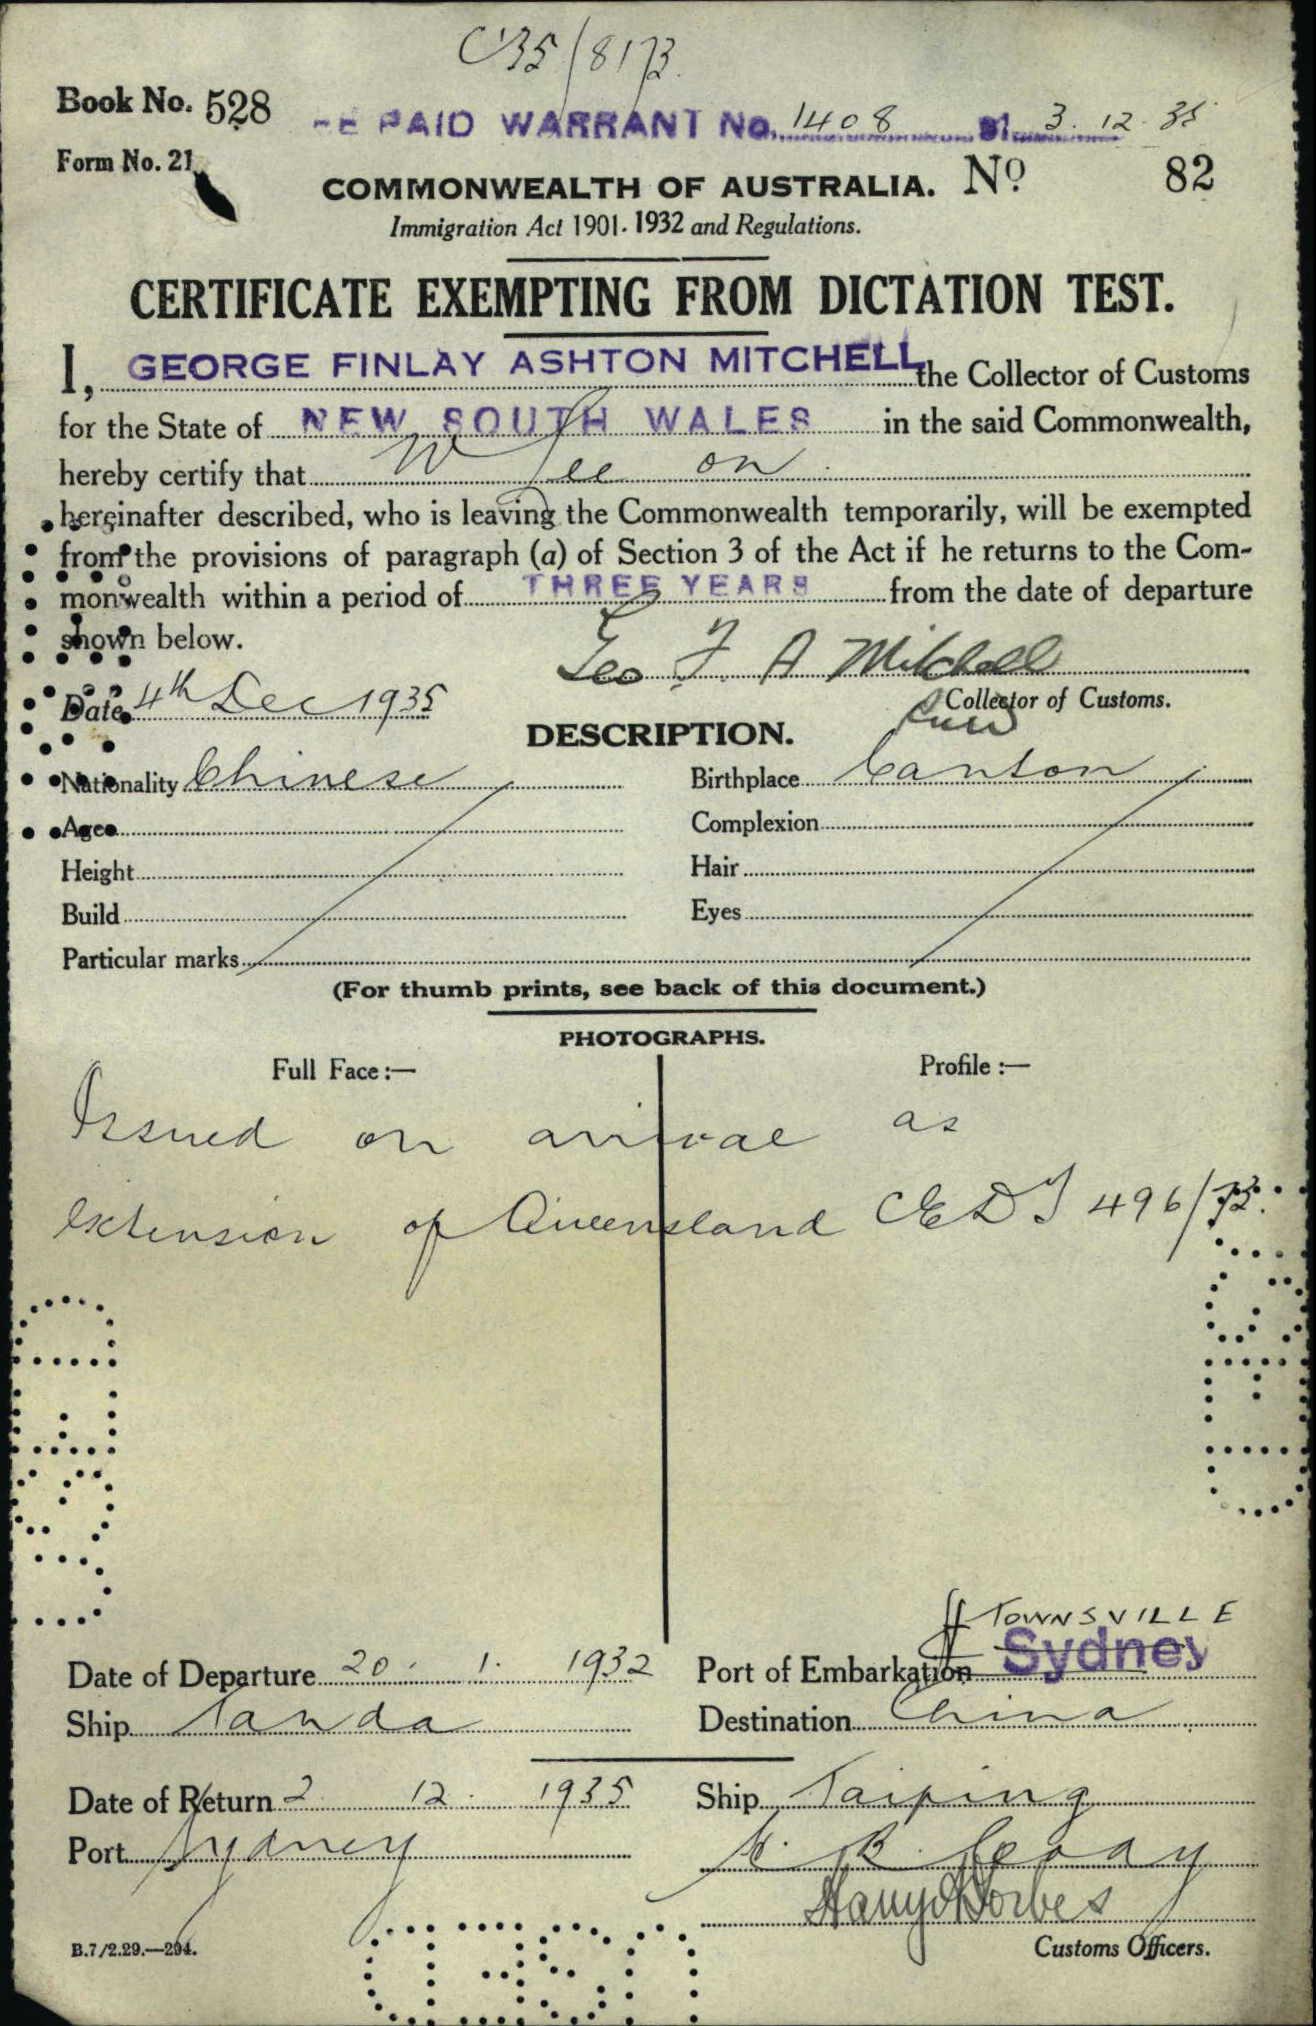 C35/8173.
Book No. 528
FEE PAID WARRANT No. 1408 of 3.12.35
Form No. 21
COMMONWEALTH OF AUSTRALIA. No. 82
Immigration Act 1901-1932 and Regulations.
CERTIFICATE EXEMPTING FROM DICTATION TEST.
I, GEORGE FINLAY ASHTON MITCHELL the Collector of Customs
for the State of NEW SOUTH WALES in the said Commonwealth,
hereby certify that W Lee on
hereinafter described, who is leaving the Commonwealth temporarily, will be exempted
from the provisions of paragraph (a) of Section 3 of the Act if he returns to the Com-
monwealth within a period of THREE YEARS from the date of departure
shown below.
Geo F. A Mitchell
Date 4th Dec 1935
Collector of Customs.
DESCRIPTION.
Nationality Chinese Birthplace Canton
Age Complexion
Height Hair
Build Eyes
Particular marks
(For thumb prints, see back of this document.)
PHOTOGRAPHS.
Full Face:— Profile:—
Issued on arrival as
extension of Queensland CEDT 496/73.
TOWNSVILLE
Date of Departure 20. 1. 1932 Port of Embarkation Sydney
Ship Tanda Destination China
Date of Return 2 12. 1935 Ship Taiping
Port Sydney
Customs Officers.
B.7/2.29.—294.
USED